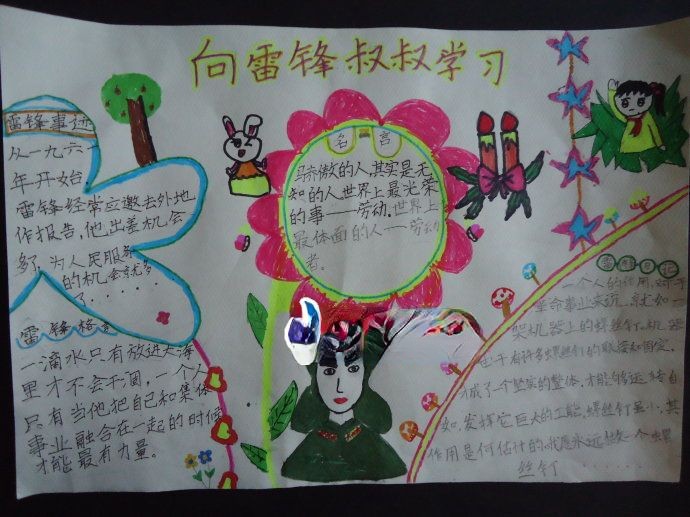 向雷锋叔叔学习
雷锋事迹
从一九六一
年开始
雷锋经常应邀去外地
作报告,他出差机会
多了,为人民服务
的机会就多
了......
雷锋格言
一滴水只有放进大海
里才不会干涸,一个人
只有当他把自己和集体
事业融合在一起的时候
才能最有力量。
名言
骄傲的人,其实是无
知的人世界上最光荣
的事——劳动.世界上
最体面的人——劳动
者。
雷锋日记
一个人的作用,对于
革命事业来说,就如一
架机器上的螺丝钉。机器
由于有许多螺丝钉的联接和固定,
成了个坚实的整体,才能够运转自
如,发挥它巨大的工能,螺丝钉虽小,其
作用是何估计的,我愿永远做一个螺
丝钉